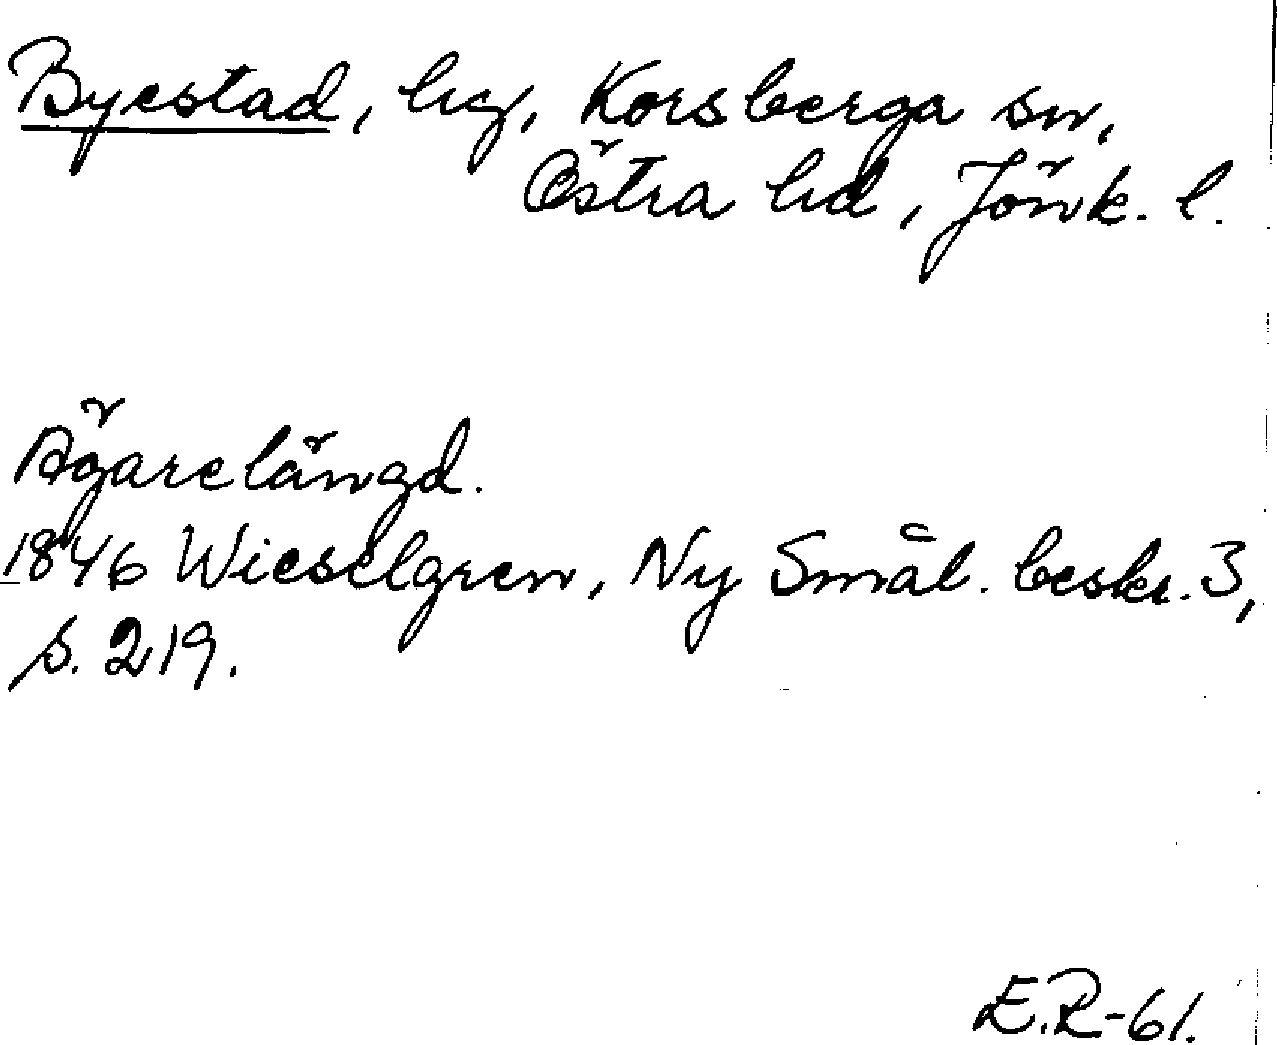 Byestad, hg, Korsberga sn,
Östra hd, Jönk. l.
Ägarelängd.
1846 Wieselgren, Ny Smål. beskr. 3,
s. 219.
E.R-61.